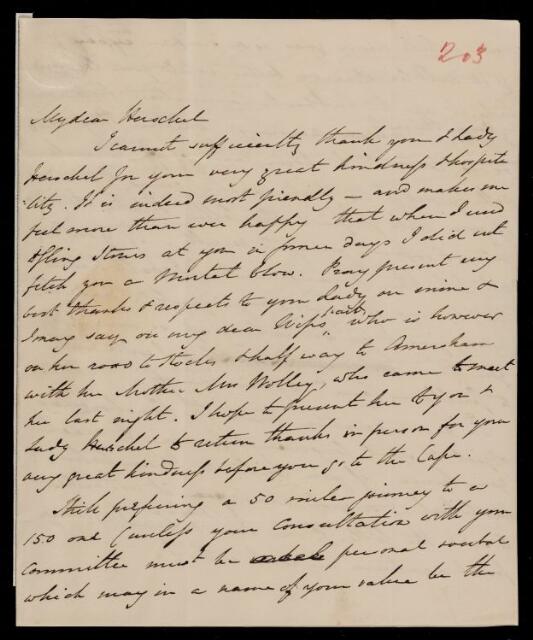 203
My dear Herschel
I cannot sufficiently thank you & Lady
Herschel for your very great kindness & hospita
lity. It is indeed most friendly – and makes me
feel more than ever happy that when I used
to fling stones at you in former days I did not
fetch you a mortal blow. Pray present my
best thanks & respects to your Lady on mine &
I may say on my dear Wife's part, who is however
on her road to Stocks & half way to Amersham
with her Mother Mrs Wolley, who came to meet
her last night. I hope to present her to you &
Lady Herschel & return thanks in person for your
very great kindness before you go to the Cape.
Still preferring a 50 miles journey to a
150 one (unless your Consultation with your
Committee must be personal verbal
which may in a name of your value be the